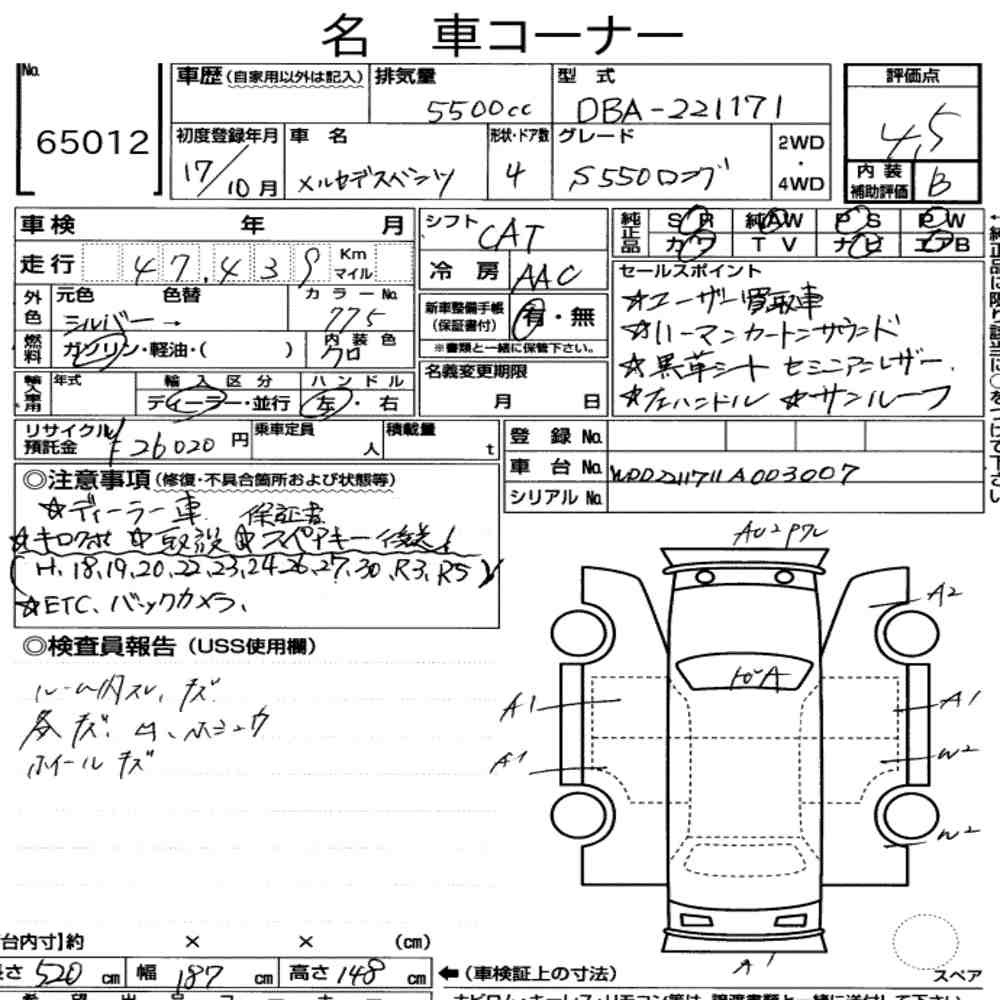 名 車コーナー
No.
65012
車歴(自家用以外は記入)
排気量
5500cc
型 式
DBA-221171
評価点
4.5
初度登録年月
17/10月
車 名
メルセデスベンツ
形状・ドア数
4
グレード
S550ロング
2WD
・
4WD
内 装
補助評価
B
車検 年 月
走行 47,439 Km
マイル
シフト CAT
冷 房 AAC
純正品
SR 純AW PS PW
カワ TV ナビ エアB
セールスポイント
☆ユーザー買取車
☆ハーマンカードンサウンド
☆黒革シート セミニアレザー.
☆左ハンドル ☆サンルーフ
外色
元色 色替 カラーNo.
シルバー → 775
新車整備手帳
(保証書付)
有・無
※書類と一緒に保管下さい。
燃料
ガソリン・軽油・( )
内装色
クロ
年式
輸入区分
ハンドル
ディーラー・並行
左・右
名義変更期限
月 日
リサイクル
預託金
¥26020円
乗車定員
人
積載量
t
登 録 No.
車 台 No. WDD2211711A003007
シリアル No.
◎注意事項(修復・不具合箇所および状態等)
☆ディーラー車. 保証書
(H.18.19.20.22.23.24.26.27.30.R3.R5)
☆ETC、バックカメラ、
◎検査員報告(USS使用欄)
ルーム内スレ、キズ
各キズ、凹、ホシュウ
ホイールキズ
A2
A1
A1
A1
W2
W2
A1
台内寸】約 × × (cm)
長さ 520 cm 幅 187 cm 高さ 148 cm
←(車検証上の寸法)
スペア